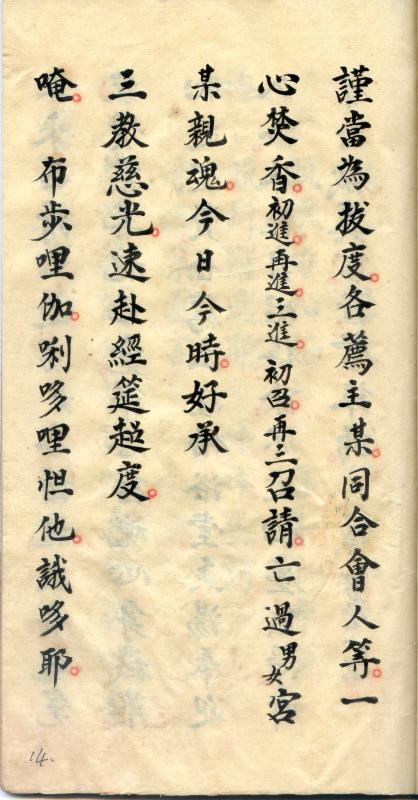 謹當為拔度。各薦主某。同合會人等。一
心焚香。初進。再進。三進 初召再三召請。亡過男女宮
某親魂。今日今時。好承
三教慈光。速赴經筵超度。
唵。布步哩伽唎哆哩怛他。誐哆耶。
14.